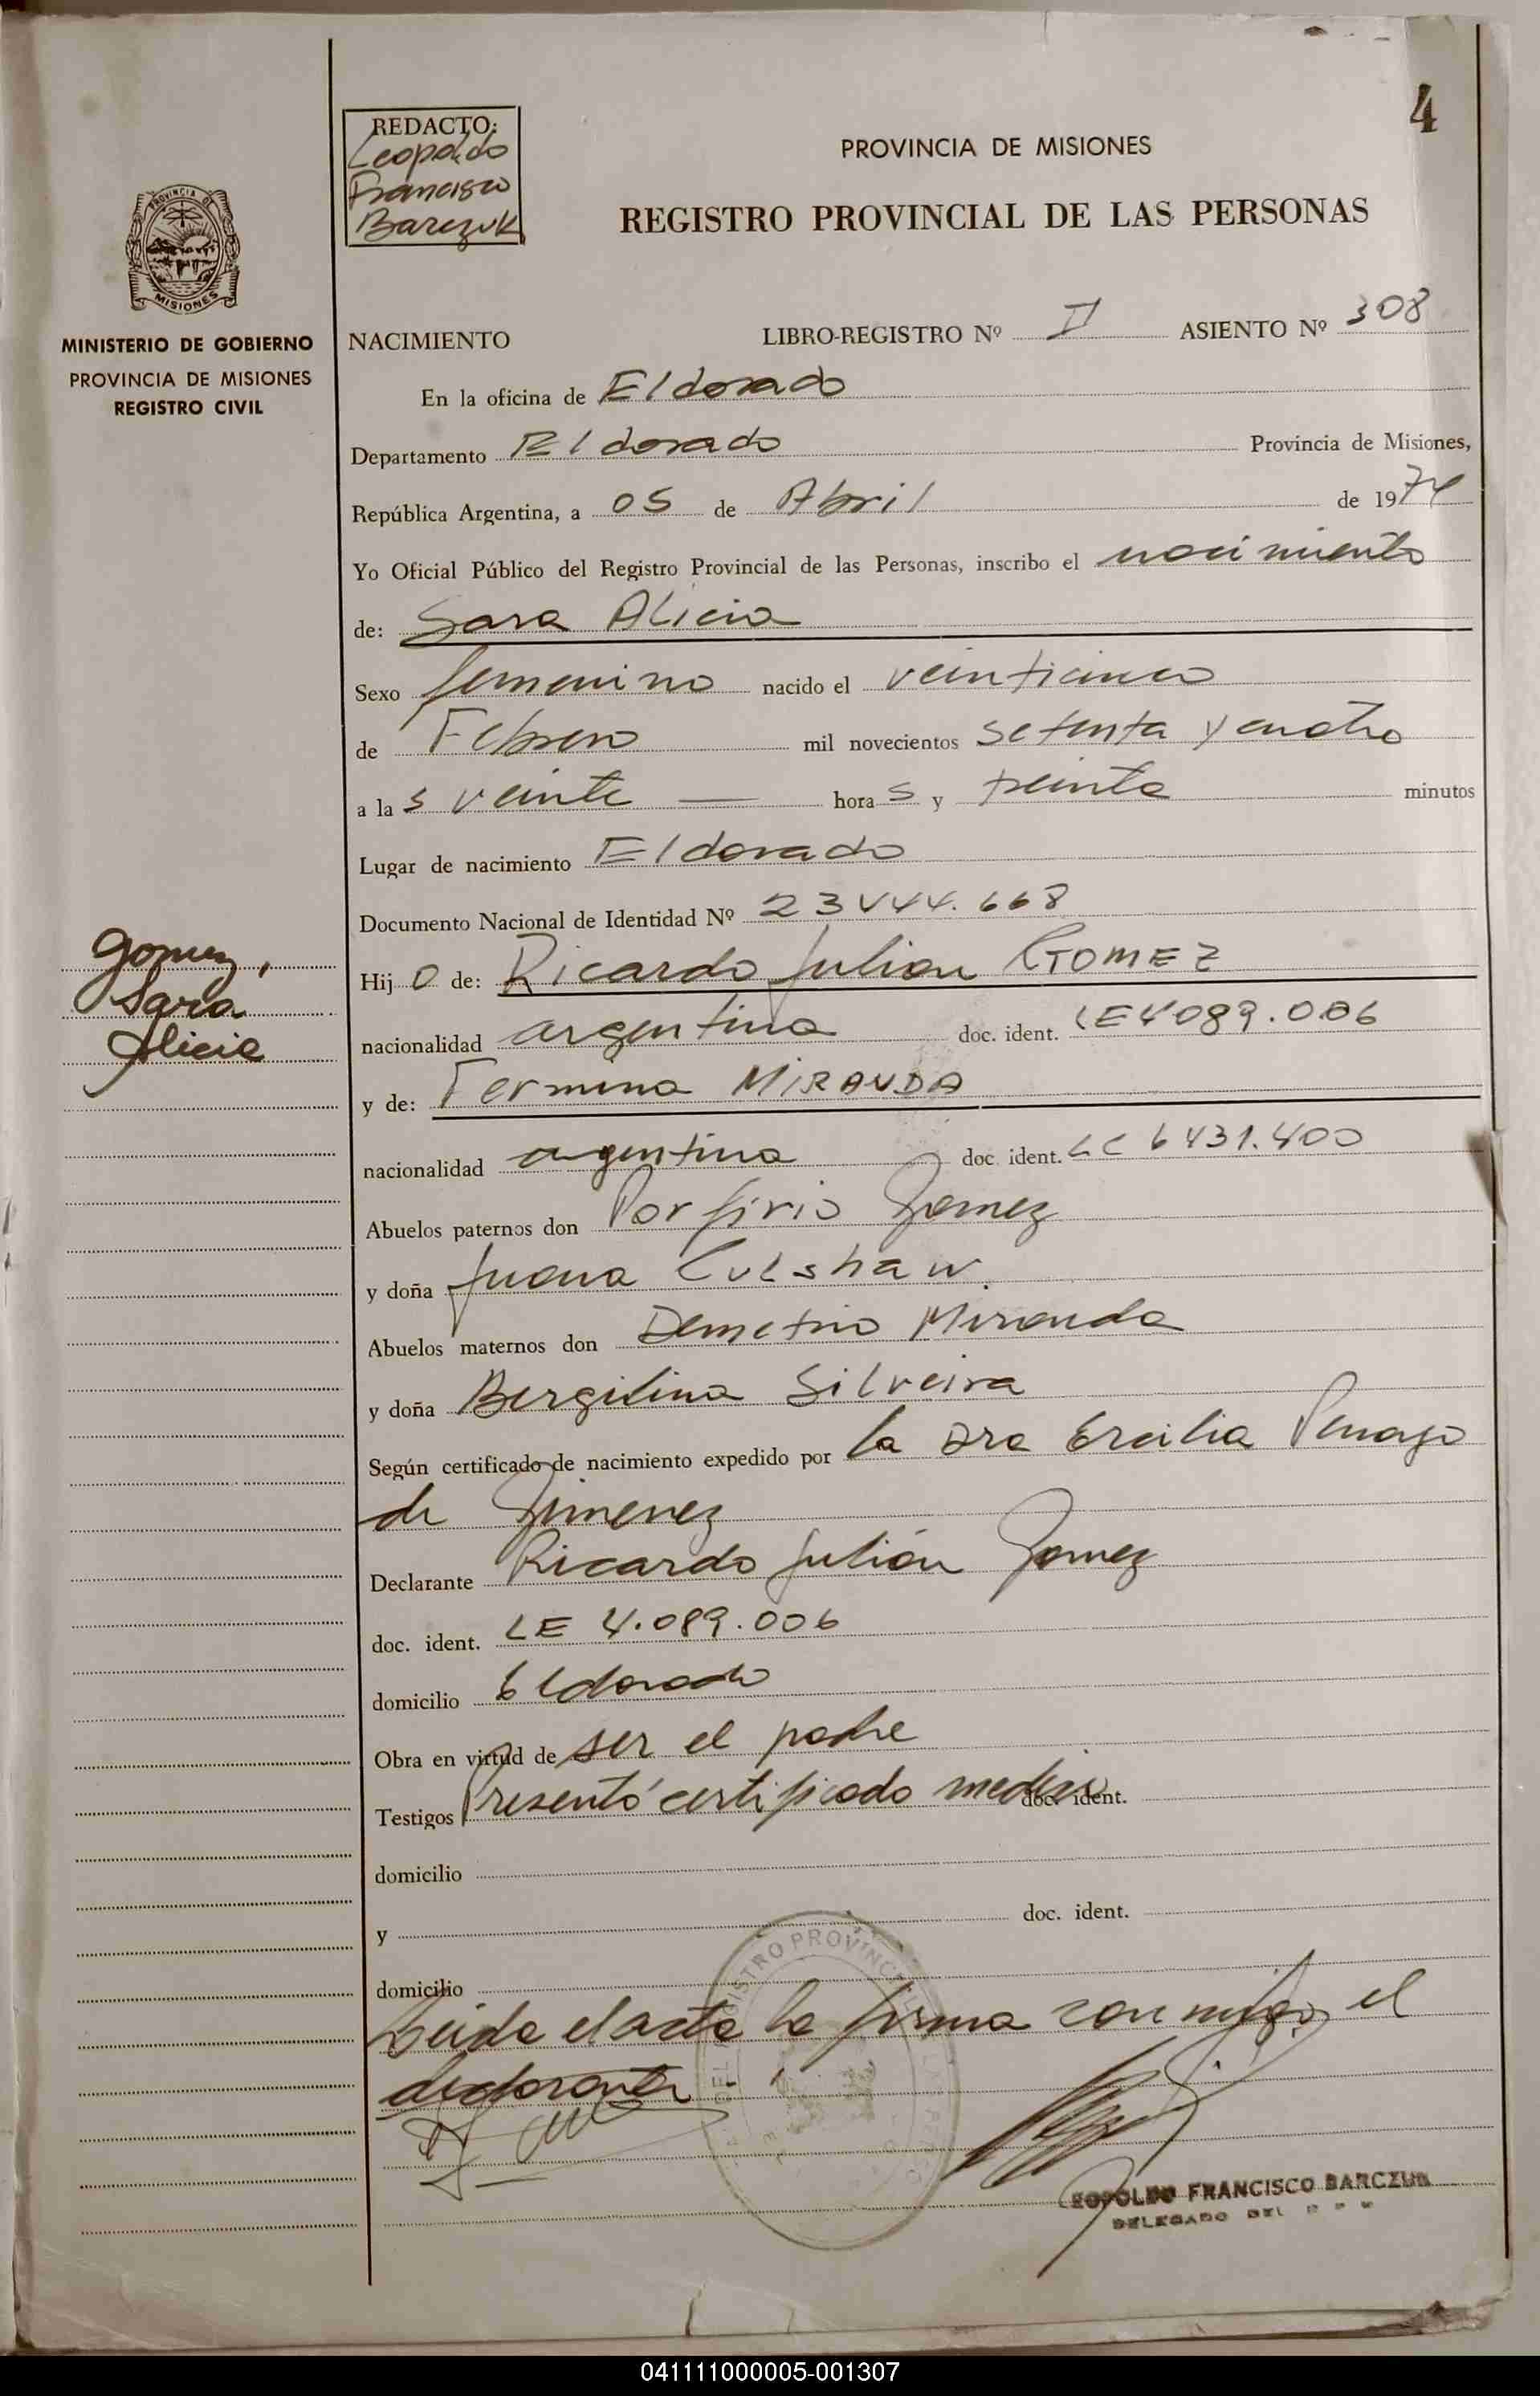 4
REDACTO:
Leopoldo
Francisco
Barczuk
PROVINCIA DE MISIONES
REGISTRO PROVINCIAL DE LAS PERSONAS
PROVINCIA DE
MISIONES
MINISTERIO DE GOBIERNO
PROVINCIA DE MISIONES
REGISTRO CIVIL
NACIMIENTO LIBRO-REGISTRO Nº II ASIENTO Nº 308
En la oficina de Eldorado
Departamento Eldorado Provincia de Misiones,
República Argentina, a 05 de Abril de 1974
Yo Oficial Público del Registro Provincial de las Personas, inscribo el nacimiento
de: Sara Alicia
Sexo femenino nacido el veinticinco
de Febrero mil novecientos setenta y cuatro
a las veinte — horas y treinta minutos
Lugar de nacimiento Eldorado
Documento Nacional de Identidad Nº 23444.668
Gomez,
Sara
Alicia
Hijo de: Ricardo Julian GOMEZ
nacionalidad argentina doc. ident. LE 4089.006
y de: Fermina MIRANDA
nacionalidad argentina doc. ident. LC 6431.400
Abuelos paternos don Porfirio Gomez
y doña Juana Culshaw.
Abuelos maternos don Demetrio Miranda
y doña Bergilina Silveira
Según certificado de nacimiento expedido por la Dra Ercilia Penayo
de Jimenez
Declarante Ricardo Julián Gomez
doc. ident. LE 4.089.006
domicilio Eldorado
Obra en virtud de ser el padre
Testigos Presentó certificado medico doc. ident.
domicilio
y doc. ident.
domicilio
Leida el acta la firma conmigo el
declarante
DEL REGISTRO PROVINCIAL DE LAS PERSONAS
LEOPOLDO FRANCISCO BARCZUK
DELEGADO DEL R P P
041111000005-001307